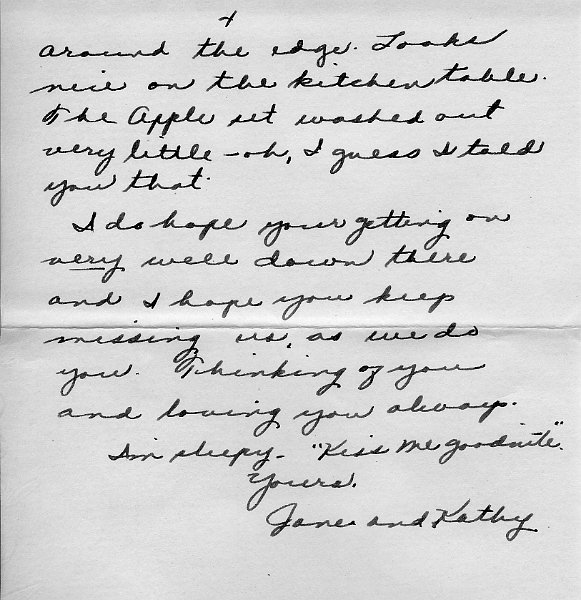 +
around the edge. Looks
nice on the kitchen table.
The Apple set washed out
very little - oh, I guess I told
you that.
I do hope your getting on
very well down there
and I hope you keep
missing us, as we do
you. Thinking of you
and loving you always.
I'm sleepy - "Kiss me goodnite".
Yours.
Jane and Kathy